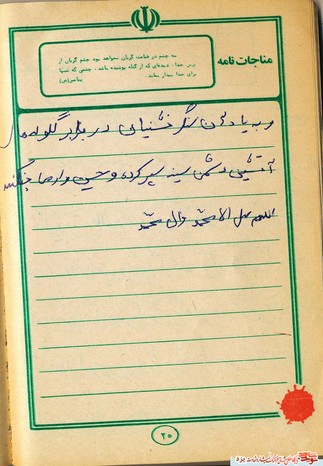 مناجات نامه
سه چشم در قیامت گریان نخواهد بود چشم گریان از
ترس خدا، دیده‌ای که از گناه پوشیده باشد، چشمی که شبها
برای خدا بیدار بماند.
پیامبر(ص)
و به یاد سنگر نشینان در برابر گلوله های
آتشین دشمن سینه سپر کرده و حسین وار می جنگند
اللهم صل الا محمد وال محمد
۲۰